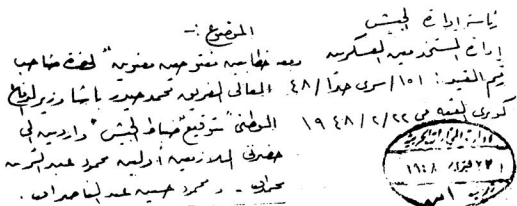 رئاسة إدارة الجيش
إدارة المستخدمين العسكريين
رقم القيد : ١٥١/ سرى جدا / ٤٨
كوبرى القبه فى ٢٢ / ٢ / ١٩٤٨
الموضوع :-
معه خطابين مفتوحين معنونين " لحضرة صاحب
المعالى الفريق محمد حيدر باشا وزير الدفاع
الوطنى " بتوقيع " ضباط الجيش " واردين الى
حضرتى الملازمين أولين محمود عبد
و محمود حسين عبد الناصر
إدارة
٢٣ فبراير ١٩٤٨